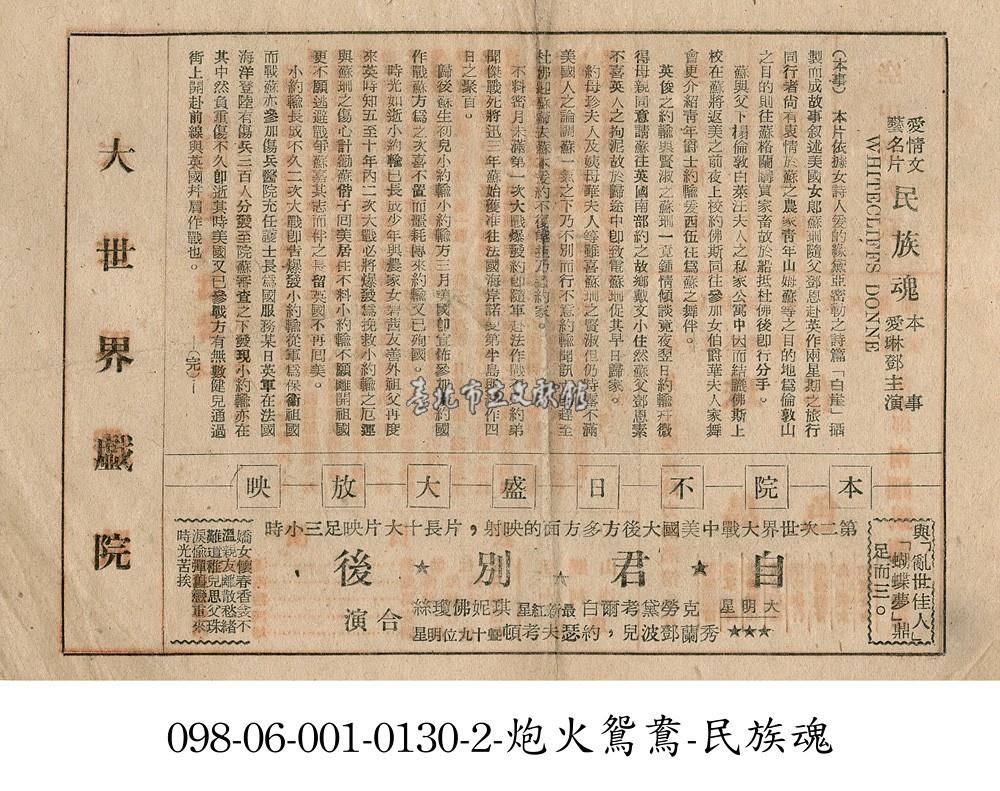 愛情文藝名片 民族魂 本事
WHITECLIFFS DONNE 愛琳鄧主演
(本事) 本片依據女詩人愛的綠黛亞密勒之詩篇「白崖」攝
製而成故事叙述美國女郞蘇珊隨父鄧恩赴英作兩星期之旅行
同行者尙有哀情於蘇之農家靑年山姆蘇等之目的地爲倫敦山
之目的則往蘇格蘭購買家畜故於船抵杜佛後卽行分手。
蘇與父下榻倫敦白萊汪夫人之私家公寓中因而結識佛斯上
校在蘇將返美之前夜上校約佛斯同往參加女伯爵華夫人家舞
會更介紹靑年爵士約翰愛西伍往爲蘇之舞伴。
英俊之約翰與賢淑之蘇珊一見鍾情傾談竟夜翌日約翰幷徵
得母親同意請蘇往英國南部約之故鄉戴文小住然蘇父鄧恩素
不喜英人之拘泥故於歸途中卽致電蘇珊促其早日歸家。
約母珍夫人及姨母華夫人等雖喜蘇珊之賢淑但仍時露不滿
美國人之論調蘇一氣之下乃不別而行不意約翰聞訊
杜佛迎蘇歸去蘇不
不料密月未滿第一次大戰爆發約卽隨軍赴法作戰
聞傑戰死將迅三年蘇始獲准往法國海岸諾曼第半島與約作四
日之聚首。
歸後蘇生初兒小約翰小約翰方三月美國卽宣佈參加
作戰蘇方爲之次喜不置而噩耗傳來約翰又已殉國。
時光如逝小約翰已長成少年與農家女碧茜友善外祖父再度
來英時知五至十年內二次大戰必將爆發爲挽救小約翰之厄運
與蘇珊之傷心計勸蘇偕子囘美居住不料小約翰不願離開祖國
更不願逃避戰爭蘇嘉其志而伴之長留英國不再囘美。
小約翰長成不久二次大戰卽告爆發小約翰從軍爲保衛祖國
而戰蘇亦參加傷兵醫院充任護士長爲國服務某日英軍在法國
海洋登陸有傷兵三百人分發至院蘇審查之下發現小約翰亦在
其中然負重傷不久卽逝其時美國又已參戰方有無數健兒通過
街上開赴前線與英國幷肩作戰也。
—(完)—
大世界戲院
臺北市立文獻館
本院不日盛大放映
與「亂世佳人」
「蝴蝶夢」鼎
足而三。
第二次世界大戰中美國大後方多方面的映射，片長十大片映足三小時
自★君★別★後
大明星
★★★
克勞黛考爾白 最新紅星 琪妮佛瓊絲
秀蘭鄧波兒，約瑟夫考頓 暨十九位明星
合演
嬌女懷春香衾不
溫親友離散愁緒
難遣稚兒思父珠
淚偷彈舊戀重來
時光苦挨
098-06-001-0130-2-炮火鴛鴦-民族魂